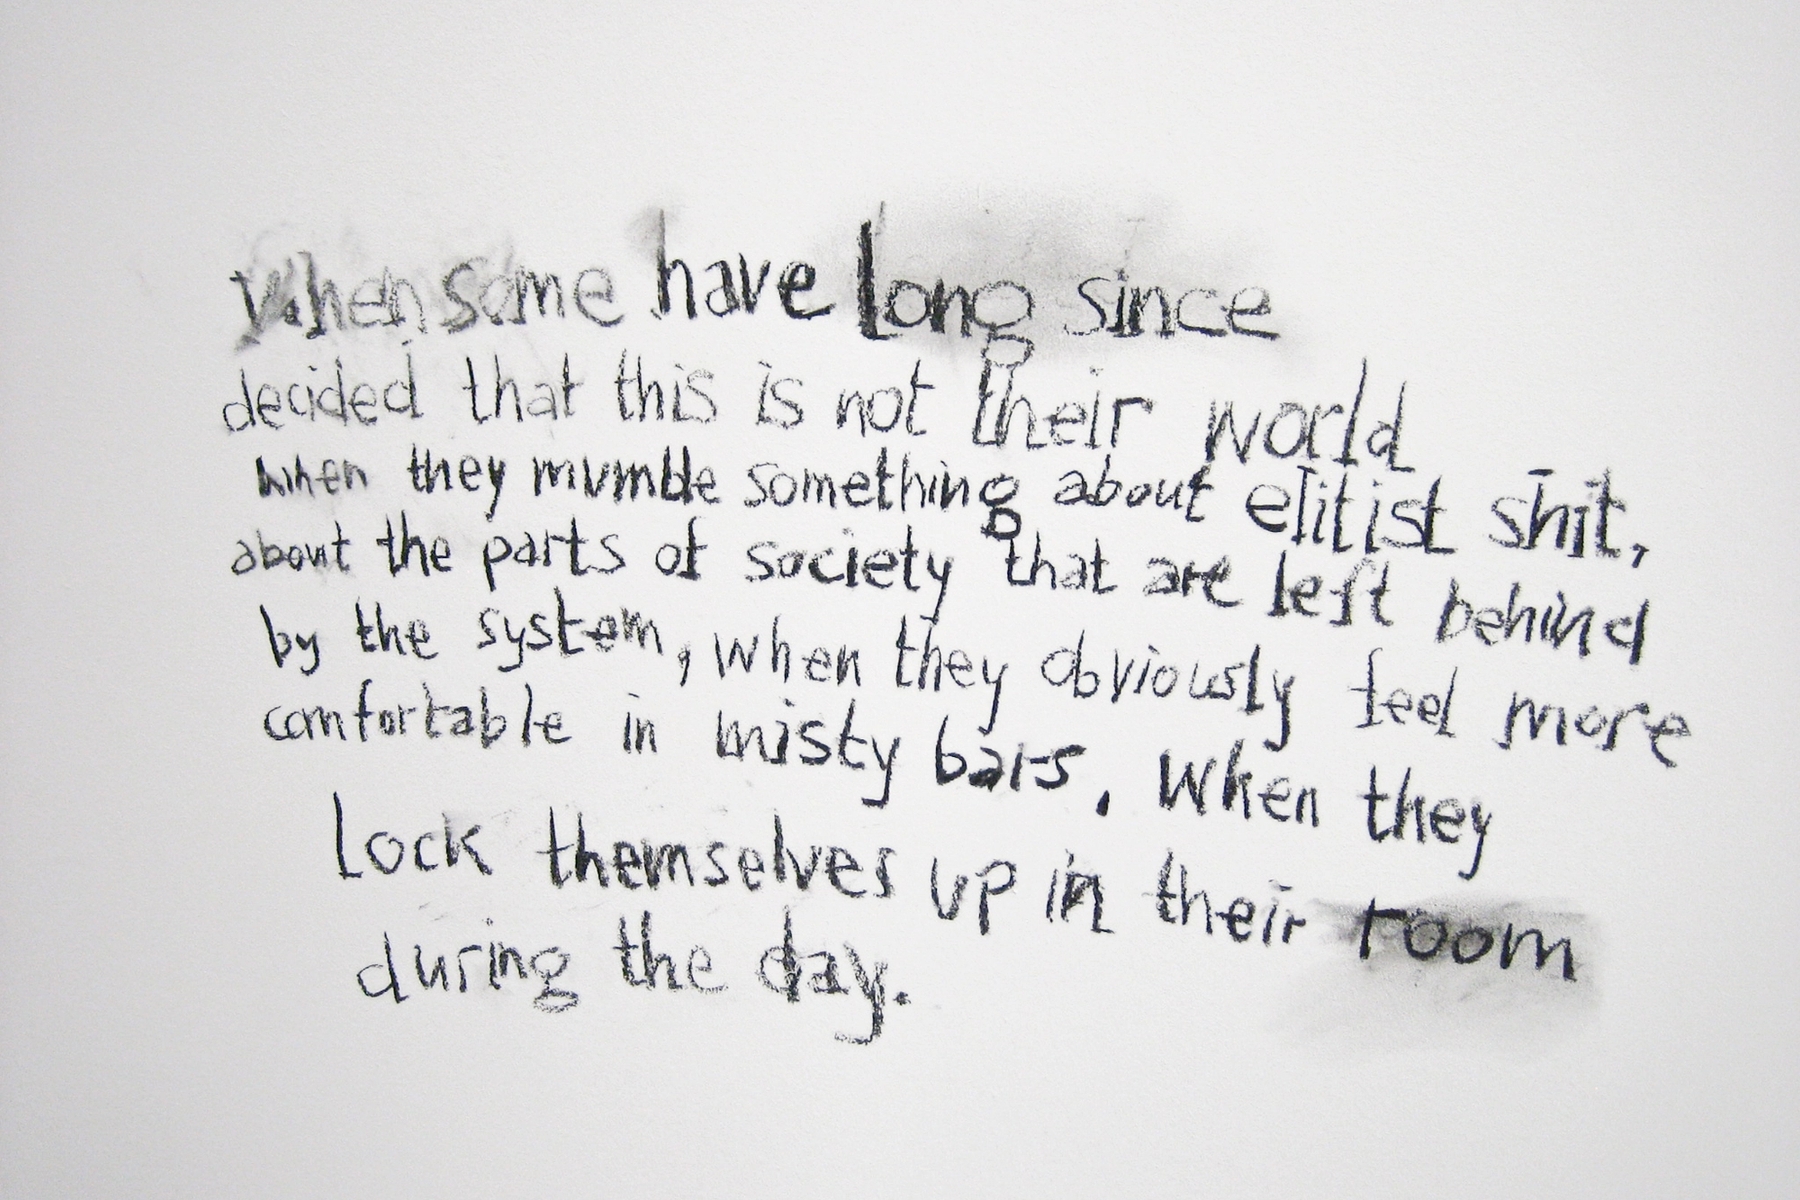 When some have long since
decided that this is not their world
when they mumble something about elitist shit,
about the parts of society that are left behind
by the system, when they obviously feel more
comfortable in misty bars, when they
lock themselves up in their room
during the day.